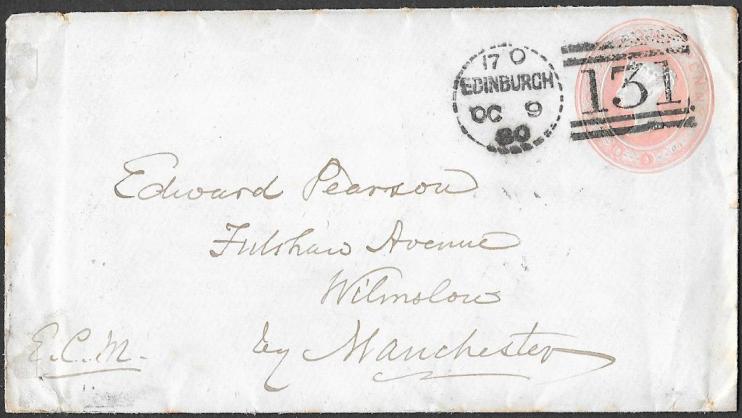 17 O
EDINBURGH
OC 9
80
131
Edward Pearson
Fulshaw Avenue
Wilmslow
E.C.M.
by Manchester